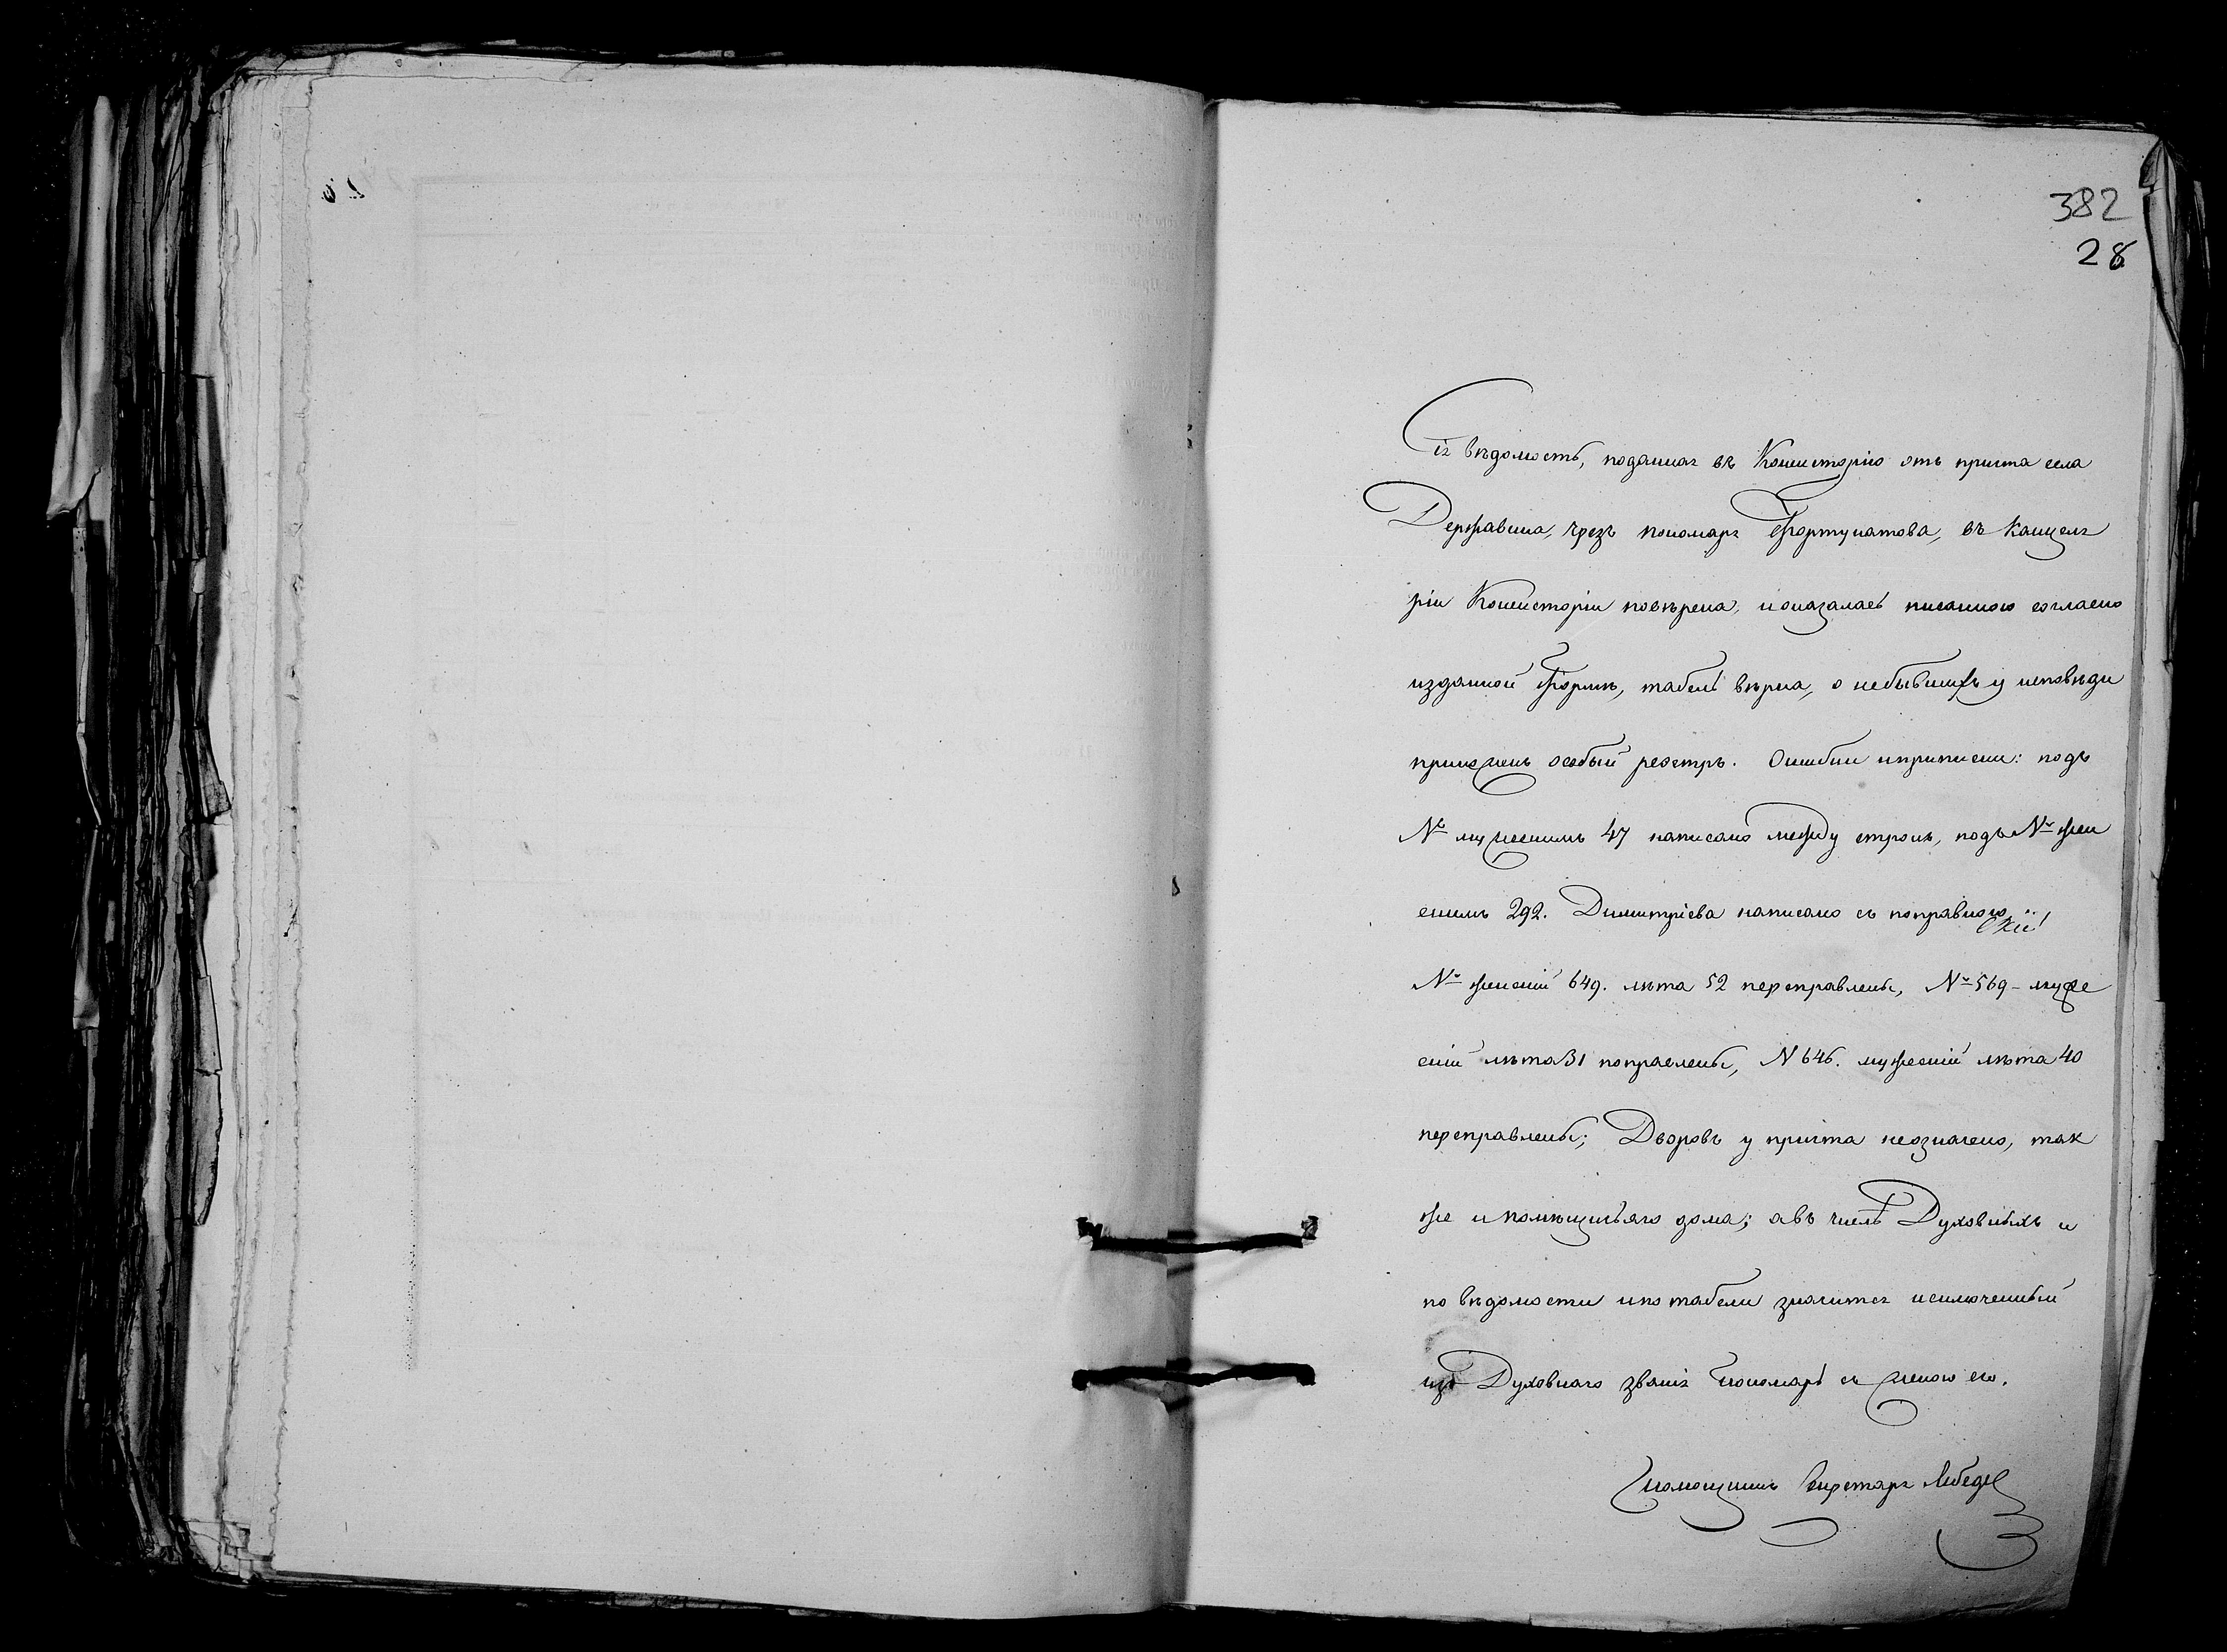 382
28
Сія вѣдомость, поданная въ Консисторію отъ причта села
Державина, чрезъ пономаря Фортунатова, въ Канцеля
ріи Консисторіи повѣрена, и оказалась писанною согласно
изданной Формѣ, табель вѣрна, о небывшихъ у исповѣди
приложенъ особый реэстръ. Ошибки и приписки: подъ
№ мужескимъ 47 написано между строкъ, подъ № жен
скимъ 292. Димитріева написано съ поправкою,
№ женскій 649. лѣта 52 переправлены, № 569 - муже
скій лѣта 31 поправлены, N 646. мужескій лѣта 40
переправлены; Дворовъ у причта неозначено, так
же и помѣщичьяго дома; а въ числѣ Духовныхъ и
по вѣдомости и по табели значится исключенный
изъ Духовнаго званія пономарь съ женою его.
Помощникъ Секретаря Лебедев